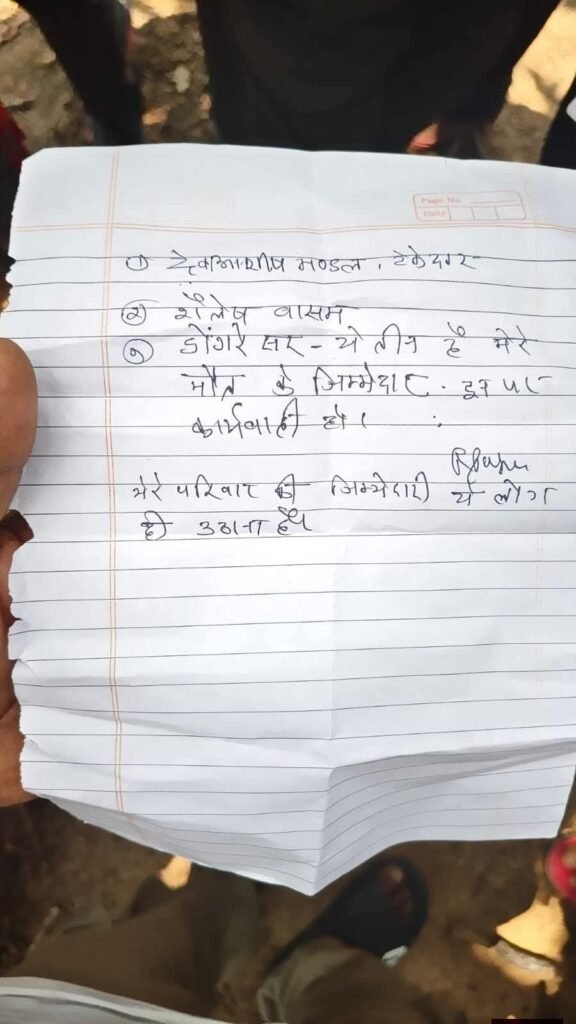 Page No.
Date
① देवआशीष मण्डल . ठेकेदार
② शैलेष वासम
③ डोंगरे सर - ये तीन है मेरे
मौत के जिम्मेदार . इन पर
कार्यवाही हो।
मेरे परिवार की जिम्मेदारी ये लोग
ही उठाना है